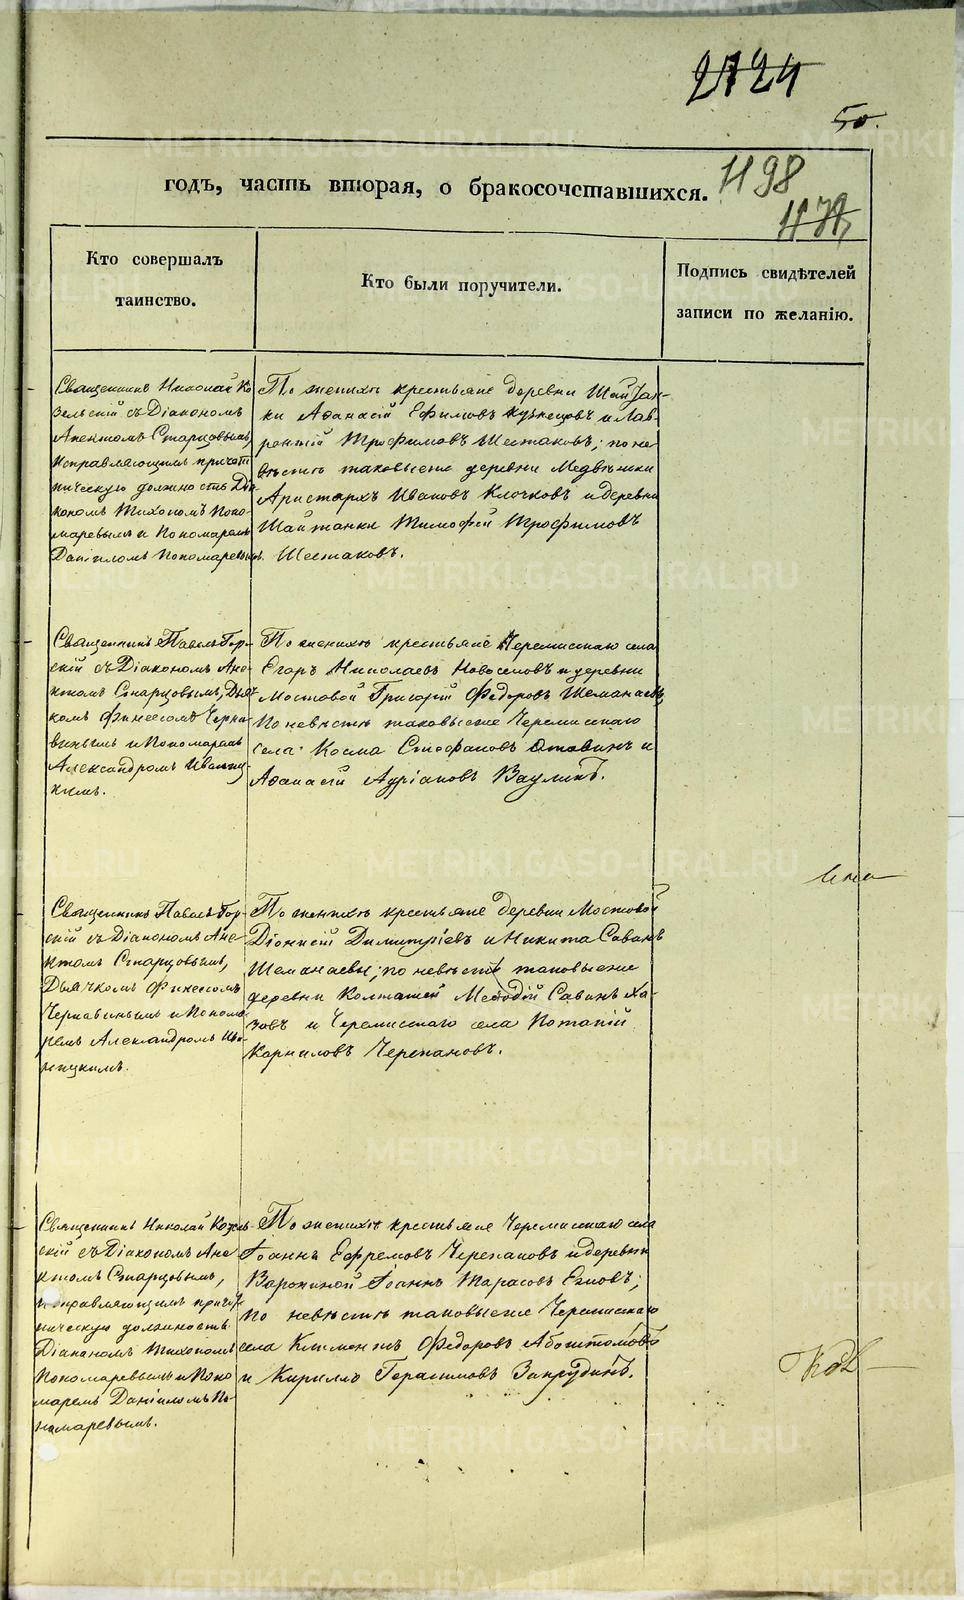 2124
50.
годъ, часть вторая, о бракосочетавшихся.
1198
Кто совершалъ
таинство.
Кто были поручители.
Подпись свидѣтелей
записи по желанію.
Священникъ Николай Ко
зельскій съ Діакономъ
Анектомъ Старцовымъ,
исправляющимъ причет
ническую должность Діа
кономъ Тихономъ Поно
маревымъ и Пономаремъ
Даніиломъ Пономаревымъ.
По женихѣ крестьяне деревни Шайтан-
ки Аѳанасій Ефимовъ Кузнецовъ и Лав-
рентій Трофимовъ Шестаковъ; по не
вѣстѣ таковыеже деревни Медвѣшки
Аристархъ Ивановъ Клочковъ и деревни
Шайтанки Тимофей Трофимовъ
Шестаковъ.
Священникъ Павелъ Гор-
скій съ Діакономъ Ане
ктомъ Старцовымъ, Дьяч
комъ Финеесомъ Черна
винымъ и Пономаремъ
Александромъ Иваниц
кимъ.
По женихѣ крестьяне Черемисскаго села
Егоръ Николаевъ Новоселовъ и деревни
Мостовой Григорій Федоровъ Шеманаевъ,
По невѣстѣ таковыеже Черемисскаго
села: Косма Стефановъ и
Аѳанасій Адріановъ Ваулинъ.
Священникъ Павелъ Гор-
скій съ Діакономъ Ане
ктомъ Старцовымъ,
Дьячкомъ Финеесомъ
Чернавинымъ и Понома
ремъ Александромъ Ива
ницкимъ.
По женихѣ крестьяне деревни Мостовой
Діонисій Димитріевъ и Никита Савинъ
Шеманаевы; по невѣстѣ таковыеже
деревни Колташей Меѳодій Савинъ Ха-
зовъ и Черемисскаго села Потапій
Корниловъ Черепановъ.
Священникъ Николай Козель-
скій съ Діакономъ Ане
ктомъ Старцовымъ,
исправляющимъ причет
ническую должность
Діакономъ Тихономъ
Пономаревымъ и Поно
маремъ Даніиломъ По-
номаревымъ.
По женихѣ крестьяне Черемисскаго села
Іоаннъ Ефремовъ Черепановъ и деревни
Ворониной Іоаннъ Тарасовъ Ежовъ;
по невѣстѣ таковыеже Черемисскаго
села Климентъ Федоровъ
и Кириллъ Герасимовъ Запрудинъ.